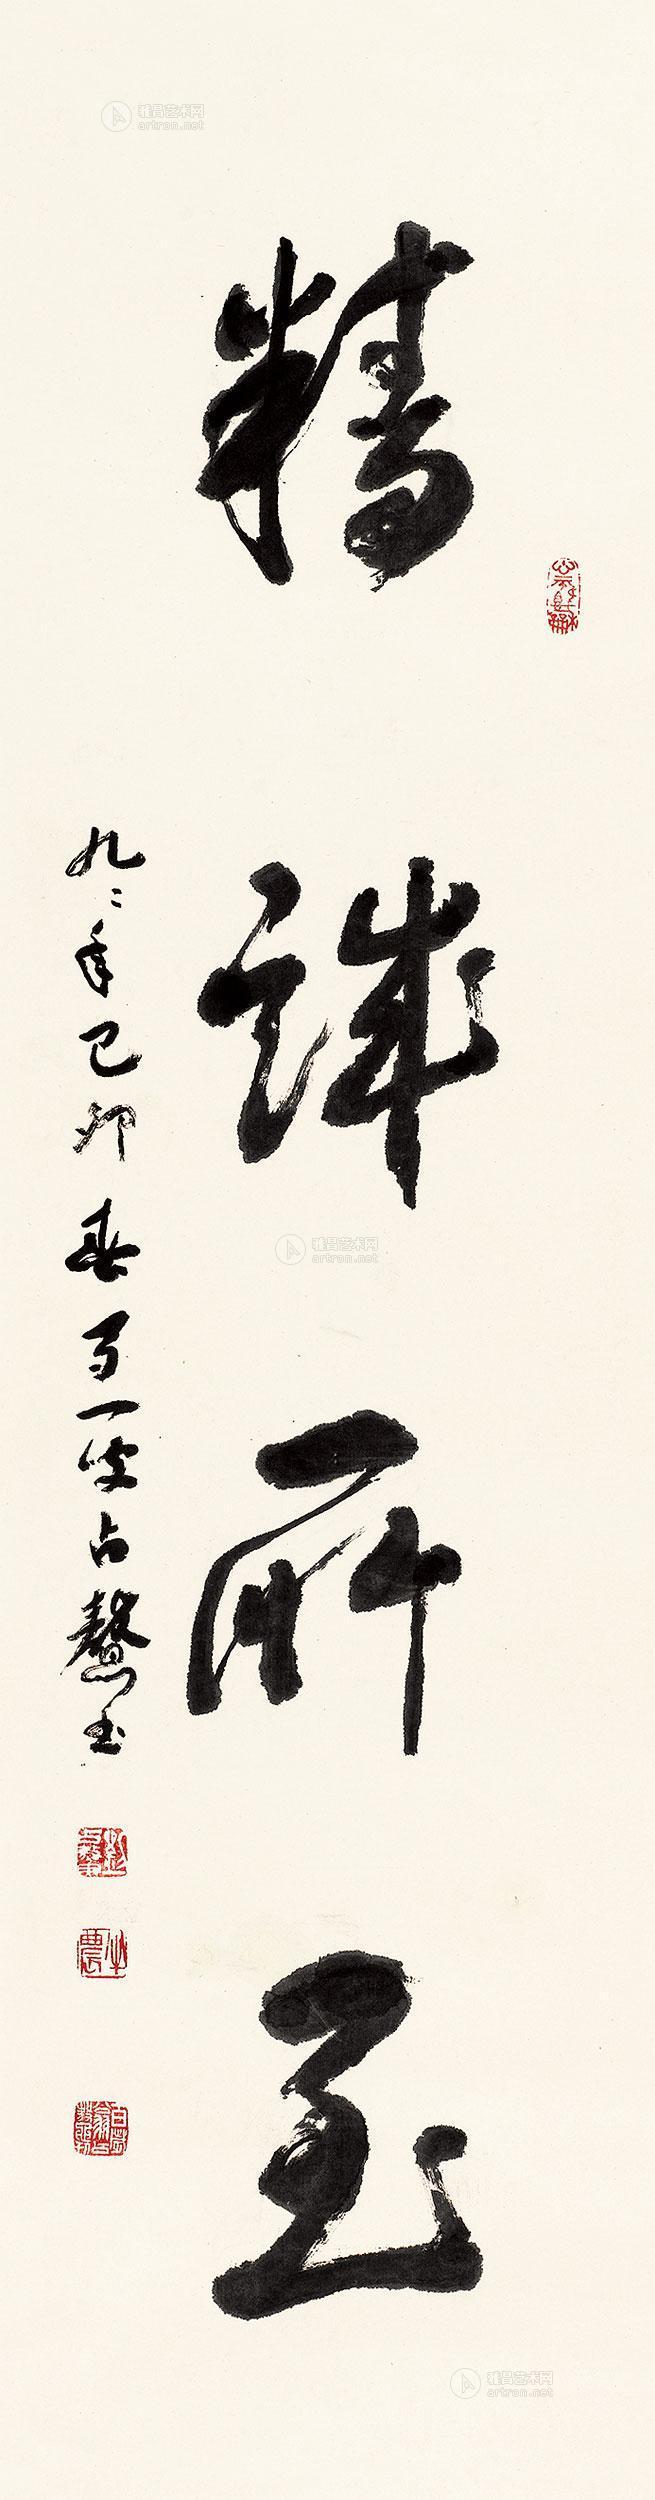 精诚所至
九二年己卯春百一叟占鳌书
雅昌艺术网
artron.net
雅昌艺术网
artron.net
雅昌艺术网
artron.net